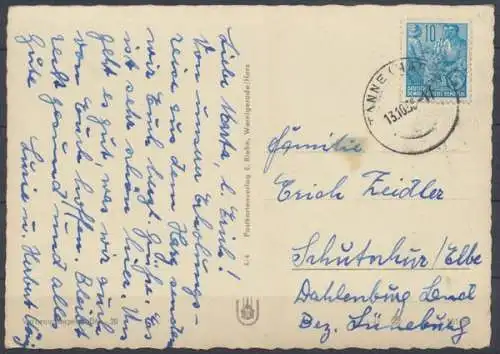 Liebe Marta, l. Erich!
Von unserer Erholungs-
reise zu dem Harz senden
wir Euch herzl. Grüße. Es
ist sehr schön hier. Uns
geht es gut was wir auch
von Euch hoffen. Bleibt
recht gesund und alles
Gute
u. Herbert
Postkartenverlag E. Riehn, Wernigerode/Harz
10
DEUTSCHE
DEMOKRATISCHE REPUBLIK
TANNE (HARZ)
13.10.5
Familie
Erich Zeidler
Schutschur/Elbe
Dahlenburg Land
Bez. Lüneburg